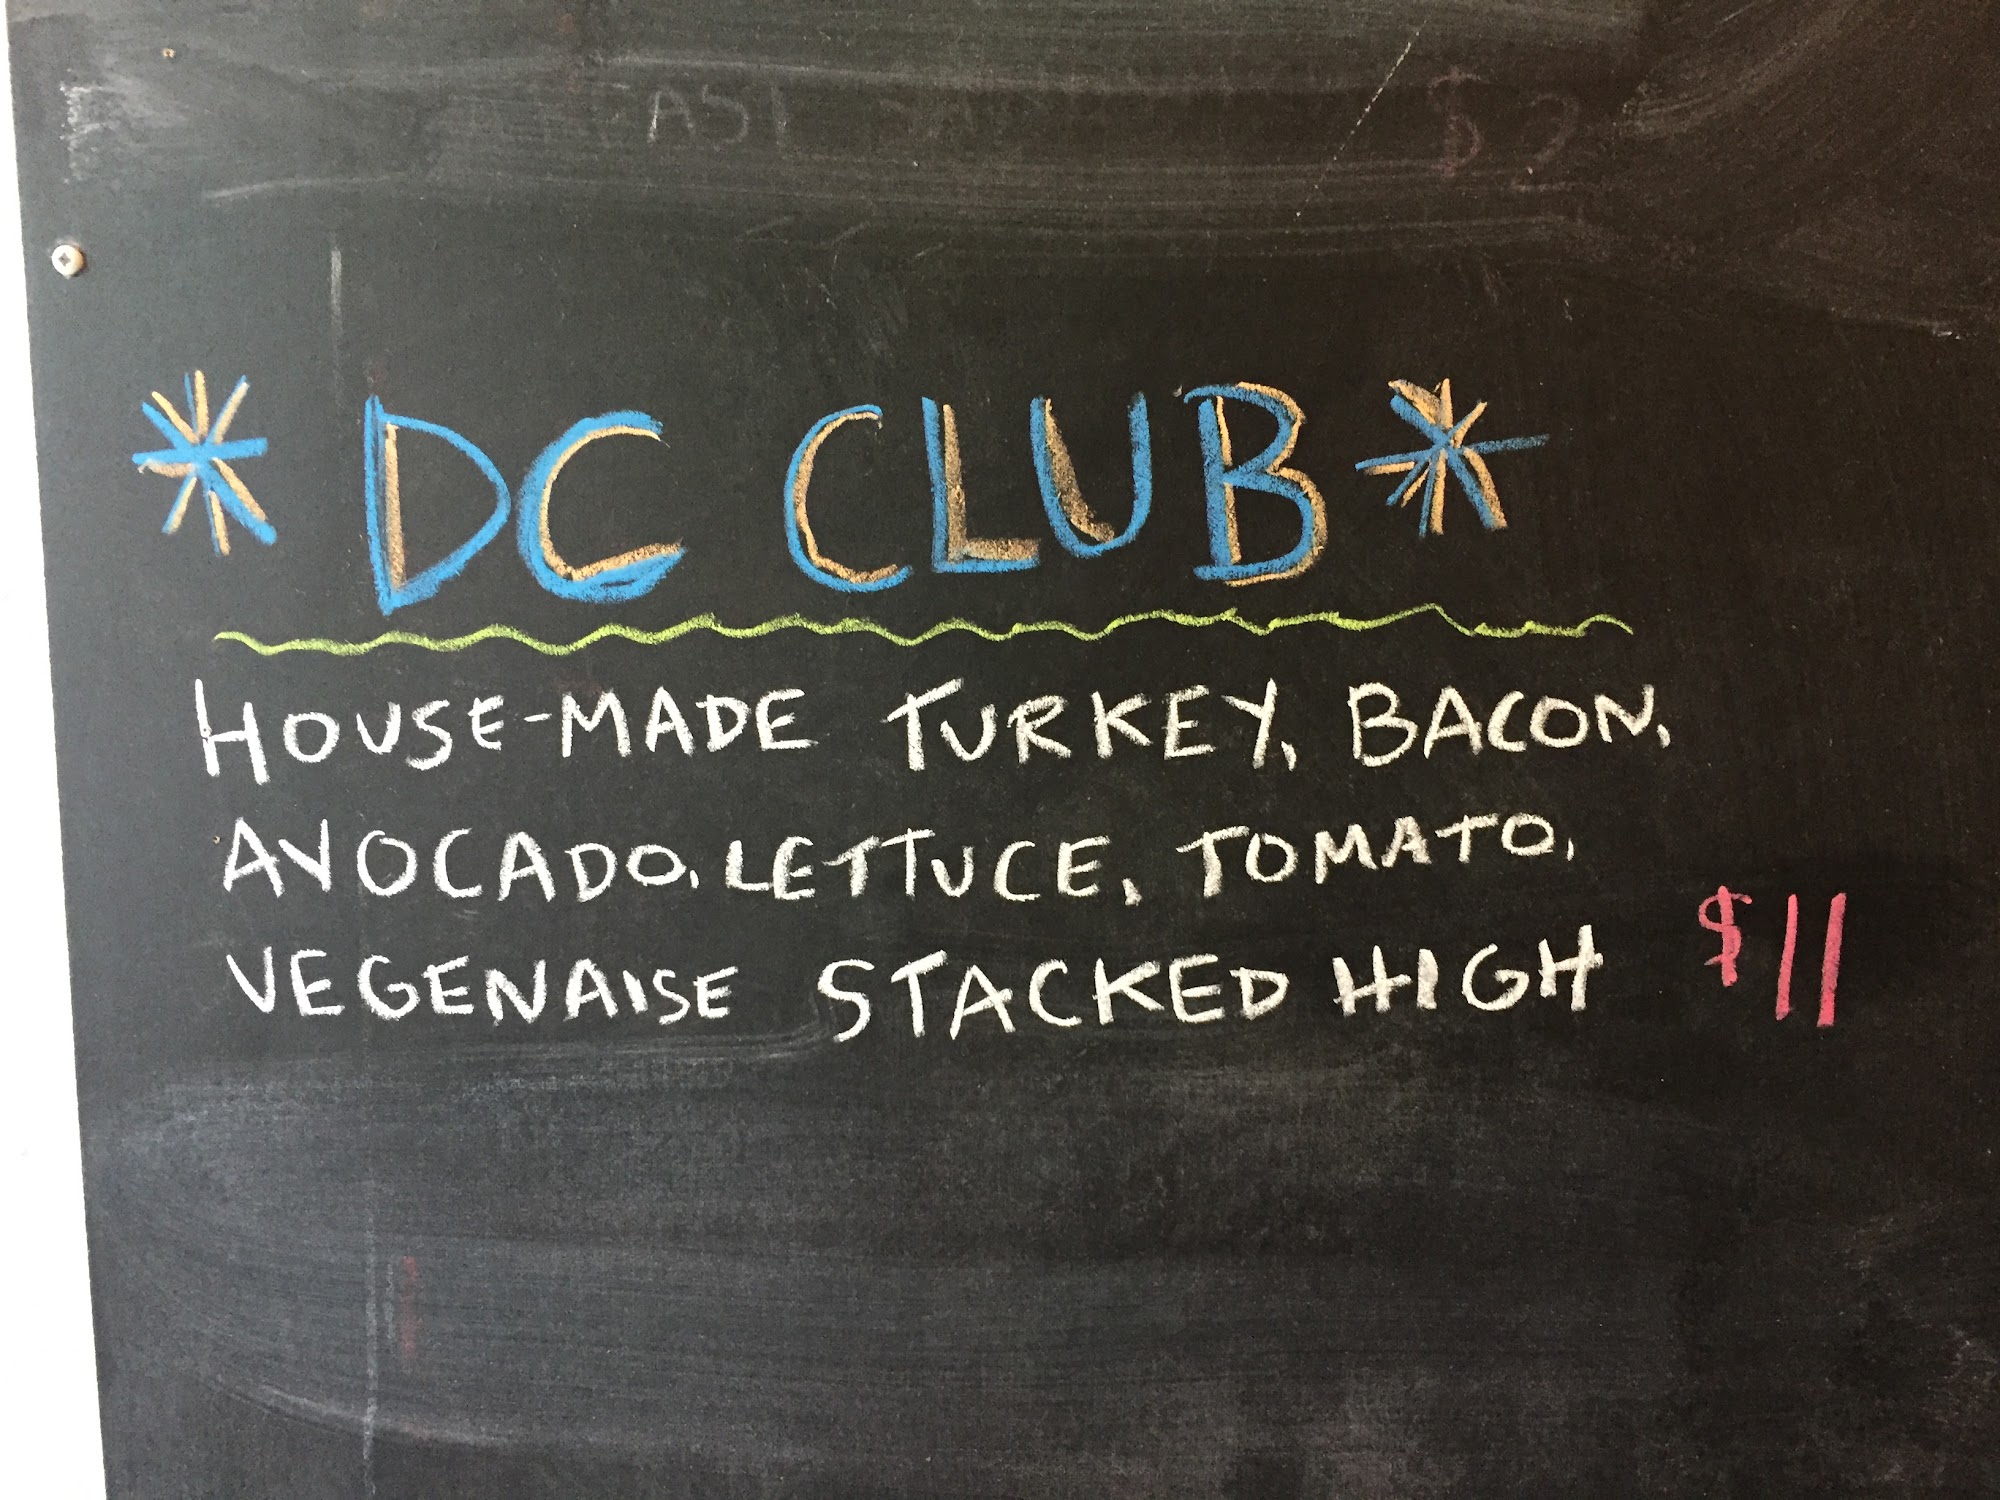 * DC CLUB *
HOUSE-MADE TURKEY, BACON,
AVOCADO, LETTUCE, TOMATO,
VEGENAISE STACKED HIGH $11